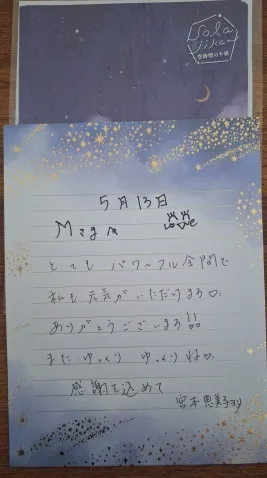 Sola
Jikan
５月１３日
Megu
Love
とても パワーフル全開で
私も 元気がいただけます♡
ありがとうございます!!
また ゆっくり ゆっくりね♡
感謝を込めて
宮本恵美子より